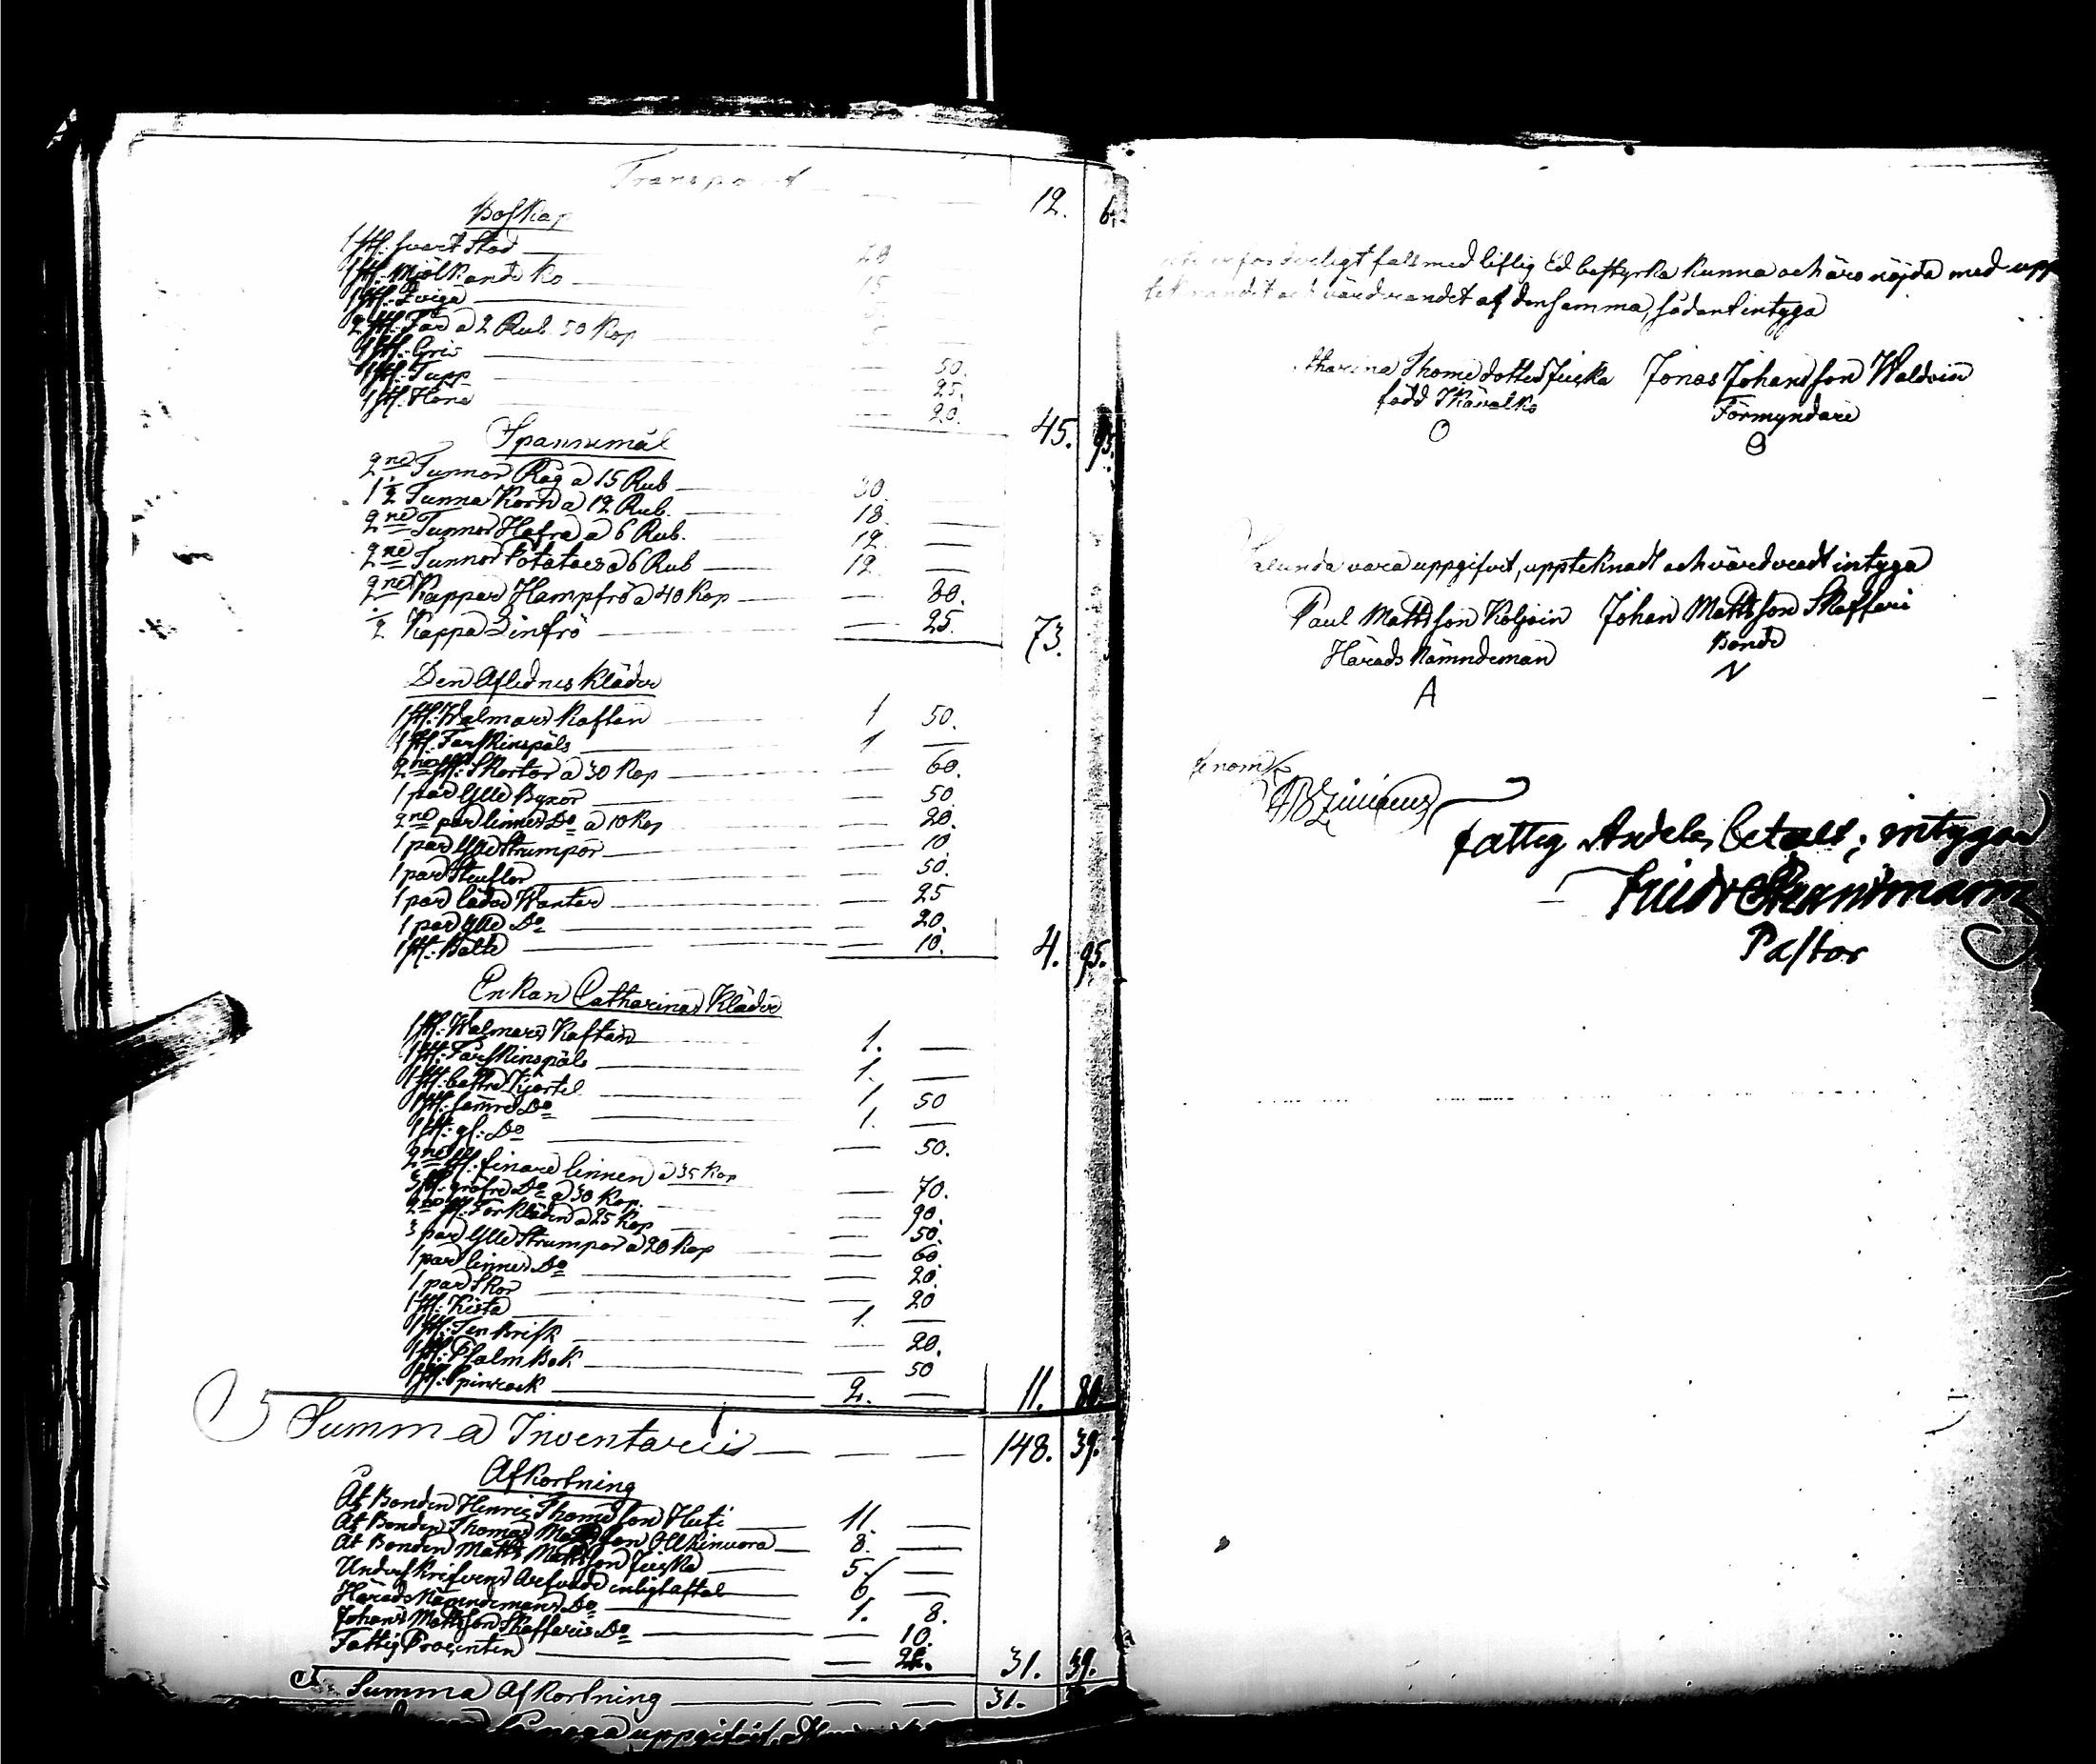 Transport 12. 6
Boskap
1 st. svart Sto 20
1 st. Mjölkande Ko 15
1 st. Qviga
2 st. Får a 2 Rub. 50 Kop 5
1 st. Gris 50.
1 st. Tupp 25.
1 st. Höna 20. 45. 95.
Spannemål
2ne Tunnor Råg a 15 Rub 30.
1 1/2 Tunna Korn a 12 Rub. 18.
2ne Tunnor Hafra a 6 Rub. 12.
2ne Tunnor Potatoes a 6 Rub 12.
2ne Kappar Hampfrö a 40 Kop 80.
1/2 Kappa Linfrö 25. 73.
Den Aflednes Kläder
1 st. Walmars Kaftan 1 50.
1 st. Fårskinspäls 1
2ne st. Skortor a 30 Kop 60.
1 par Ylle Byxor 50
2ne par linne Do a 10 Kop 20.
1 par Ylle Strumpor 10
1 par Steuflor 50.
1 par läder Wantar 25
1 par Ylle Do 20.
1 st. Bälte 10. 4. 95.
Enkan Catharinas Kläder
1 st. Walmars Kaftan 1.
1 st. Fårskinspäls 1.
1 st. bättre Kjortel 1 50
1 st. sämre Do 1.
1 st. gl. Do 50.
2ne st. finare linnen a 35 Kop 70.
3 st. gröfre Do a 30 Kop. 90.
2ne st. Förkläden a 25 Kop 50.
3 par Ylle Strumpor a 20 Kop 60.
1 par linne Do 20.
1 par Skor 20
1 st. Kista 1.
1 st. 20.
1 st. Psalm Bok 50
1 st. Spinrock 2. 11. 80.
Summa Inventarii 148. 39.
Afkortning
Åt Bonden Henric Thomasson Huti 11.
Åt Bonden Thomas Mattsson 8.
Åt Bonden Matts Mattsson Juska 5.
Underskrifvens Arfvode enligt aftal 6
Härads Nämndemans Do 1. 8.
Johan Mattsson Skafferis Do 10.
Fattig Procenten 31. 39.
Summa Afkortning 31.
uppgifvit
erforderligt fall med liflig Ed bestyrka kunna och äro nöjda med upp
och värderandet af densamma, sådant intyga
Thomedotter Juska Jonas Johansson Waldvin
född Skävalko Förmyndare
O
Sålunda vara uppgifvit, upptecknadt och värderadt intyga
Paul Mattsson Koljoin Johan Mattsson Skafferi
Härads Nämndeman Bonde
A N
genom
fattig Andelen betalt; intygar
Pastor